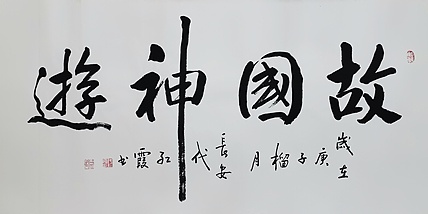 故國神遊
歲在庚子榴月長安代紅霞書